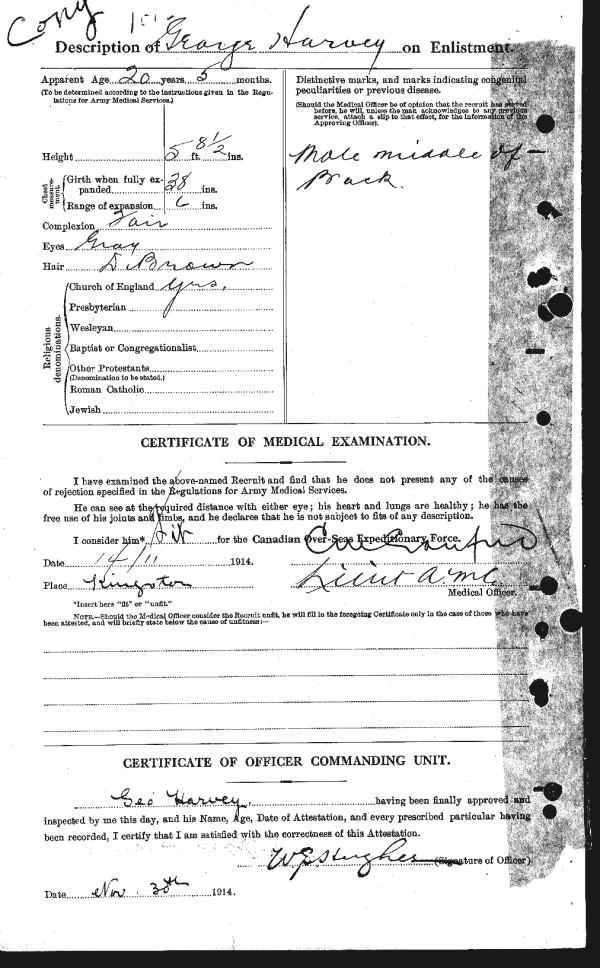 Copy
Description of George Harvey on Enlistment.
Apparent Age 20 years 5 months.
(To be determined according to the instructions given in the Regu-
lations for Army Medical Services.)
Height 5 ft. 8½ ins.
Chest
measure-
ment
Girth when fully ex-
panded 38 ins.
Range of expansion 6 ins.
Complexion Fair
Eyes Gray
Hair D. Brown
Religious
denominations.
Church of England Yes,
Presbyterian
Wesleyan
Baptist or Congregationalist
Other Protestants
(Denomination to be stated.)
Roman Catholic
Jewish
Distinctive marks, and marks indicating congenital
peculiarities or previous disease.
(Should the Medical Officer be of opinion that the recruit has served
before, he will, unless the man acknowledges to any previous
service, attach a slip to that effect, for the information of the
Approving Officer).
Mole middle of
Back.
CERTIFICATE OF MEDICAL EXAMINATION.
I have examined the above-named Recruit and find that he does not present any of the causes
of rejection specified in the Regulations for Army Medical Services.
He can see at the required distance with either eye; his heart and lungs are healthy; he has the
free use of his joints and limbs, and he declares that he is not subject to fits of any description.
I consider him* fit for the Canadian Over-Seas Expeditionary Force.
Date 14/11 1914.
Place Kingston
Lieut A.M.C.
Medical Officer.
*Insert here "fit" or "unfit."
NOTE.—Should the Medical Officer consider the Recruit unfit, he will fill in the foregoing Certificate only in the case of those who have
been attested, and will briefly state below the cause of unfitness:—
CERTIFICATE OF OFFICER COMMANDING UNIT.
Geo Harvey, having been finally approved and
inspected by me this day, and his Name, Age, Date of Attestation, and every prescribed particular having
been recorded, I certify that I am satisfied with the correctness of this Attestation.
W S Hughes (Signature of Officer)
Date Nov. 30th 1914.